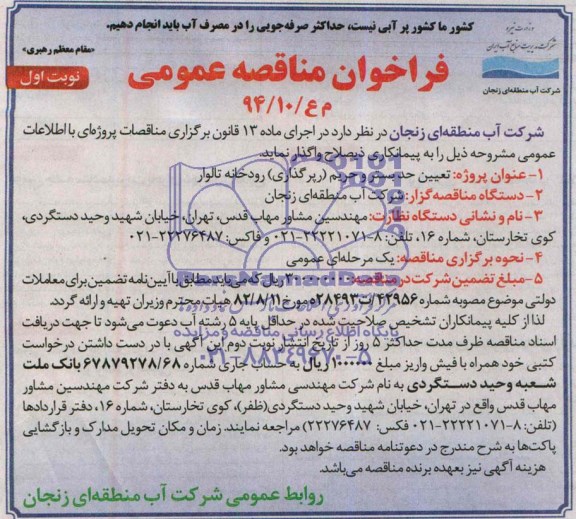 کشور ما کشور پر آبی نیست، حداکثر صرفه‌جویی را در مصرف آب باید انجام دهیم.
«مقام معظم رهبری»
وزارت نیرو
شرکت مدیریت منابع آب ایران
شرکت آب منطقه‌ای زنجان
نوبت اول
فراخوان مناقصه عمومی
م ع/۹۴/۱۰
شرکت آب منطقه‌ای زنجان در نظر دارد در اجرای ماده ۱۳ قانون برگزاری مناقصات پروژه‌ای با اطلاعات
عمومی مشروحه ذیل را به پیمانکاری ذیصلاح واگذار نماید.
۱- عنوان پروژه: تعیین حد بستر و حریم (رپرگذاری) رودخانه تالوار
۲- دستگاه مناقصه‌گزار: شرکت آب منطقه‌ای زنجان
۳- نام و نشانی دستگاه نظارت: مهندسین مشاور مهاب قدس، تهران، خیابان شهید وحید دستگردی،
کوی تخارستان، شماره ۱۶، تلفن: ۸-۲۲۲۲۱۰۷۱-۰۲۱ و فاکس: ۲۲۲۷۶۴۸۷-۰۲۱
۴- نحوه برگزاری مناقصه: یک مرحله‌ای عمومی
۵- مبلغ تضمین شرکت در مناقصه: ریال که می‌باید مطابق با آیین‌نامه تضمین برای معاملات
دولتی موضوع مصوبه شماره ۴۲۹۵۶/ت۲۸۴۹۳ه مورخ ۸۲/۸/۱۱ هیات محترم وزیران تهیه و ارائه گردد.
لذا از کلیه پیمانکاران تشخیص صلاحیت شده در حداقل پایه ۵ رشته آب دعوت می‌شود تا جهت دریافت
اسناد مناقصه ظرف مدت حداکثر ۵ روز از تاریخ انتشار نوبت دوم این آگهی با در دست داشتن درخواست
کتبی خود همراه با فیش واریز مبلغ ۱۰۰۰۰۰ ریال به حساب جاری شماره ۶۷۸۷۹۲۷۸/۶۸ بانک ملت
شعبه وحید دستگردی به نام شرکت مهندسی مشاور مهاب قدس به دفتر شرکت مهندسین مشاور
مهاب قدس واقع در تهران، خیابان شهید وحید دستگردی (ظفر)، کوی تخارستان، شماره ۱۶، دفتر قراردادها
(تلفن: ۸-۲۲۲۲۱۰۷۱-۰۲۱ فکس: ۲۲۲۷۶۴۸۷) مراجعه نمایند. زمان و مکان تحویل مدارک و بازگشایی
پاکت‌ها به شرح مندرج در دعوتنامه مناقصه خواهد بود.
هزینه آگهی نیز بعهده برنده مناقصه می‌باشد.
روابط عمومی شرکت آب منطقه‌ای زنجان
پایگاه اطلاع رسانی مناقصه و مزایده
۰۲۱-۸۸۳۴۹۶۷۰-۵